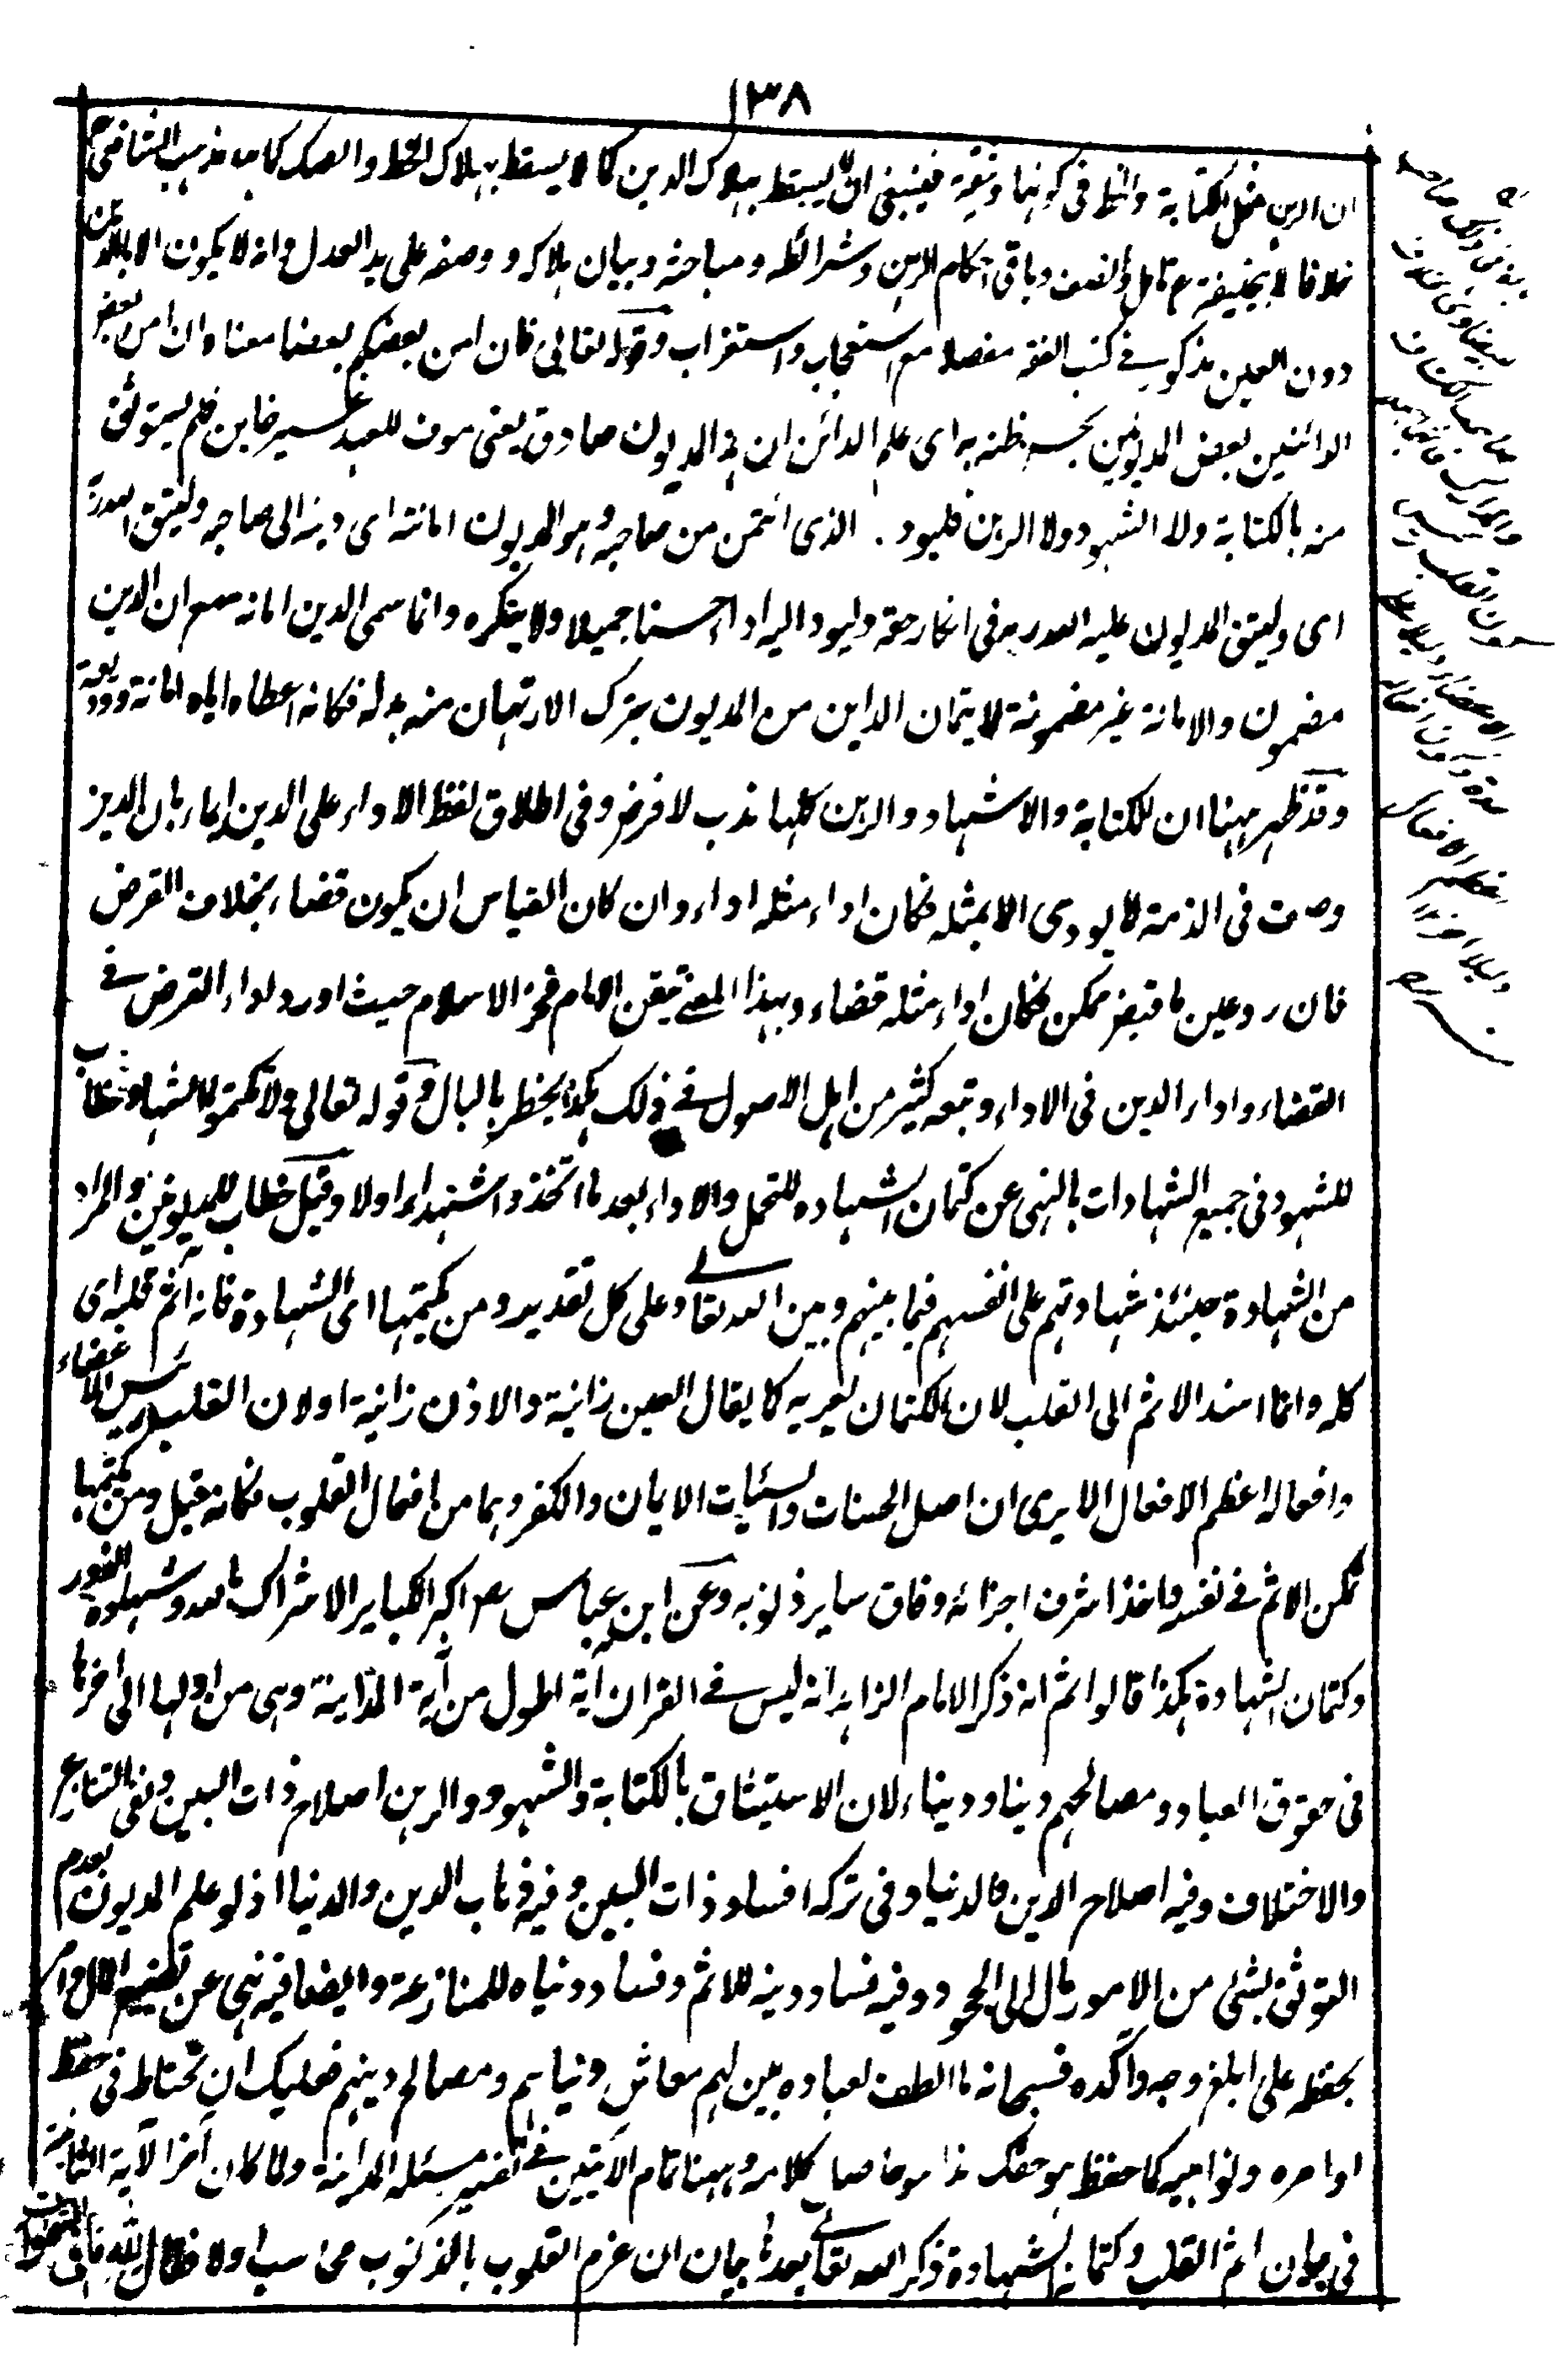 ١٣٨
ان الرهن مثل الكتابة والخط فى كونها وثيقة فينبغى ان لا يسقط بهلاك الدين كما لا يسقط بهلاك الخط والصك كما هو مذهب الشافعى
خلافا لابى حنيفة وباقى احكام الرهن وشرائطه ومباحثه وبيان هلاكه ووصفه على يد العدل وانه لا يكون الا بالدين
دون العين مذكور فى كتب الفقه مفصلا مع استعجاب واستغراب وقوله تعالى فان امن بعضكم بعضا معناه ان امن بعض
الدائنين بعض المديونين بحسن ظنه به اى علم الدائن ان هذا المديون صادق يعنى موف للعهد غير خاين فلم يستوثق
منه بالكتابة ولا الشهود ولا الرهن فليود الذى ائتمن من صاحبه وهو المديون امانته اى دينه الى صاحبه وليتق الله ربه
اى وليتق المديون عليه الله ربه فى انكار حقه وليود اليه اداء حسنا جميلا ولا ينكره وانما سمى الدين امانة مع ان الدين
مضمون والامانة غير مضمونة لايتمان الداين من المديون بترك الارتهان منه بدله فكانه اعطاه اياه امانة ووديعة
وقد ظهر ههنا ان الكتابة والاشهاد والرهن كلها ندب لا فرض وفى اطلاق لفظ الاداء على الدين ايماء بان الدين
وصف فى الذمة لا يودى الا بمثله فكان اداء مثله اداء وان كان القياس ان يكون قضاء بخلاف القرض
فان رد عين ما قبض ممكن فكان اداء مثله قضاء وبهذا المعنى تيقن الامام فخر الاسلام حيث اورد اداء القرض فى
القضاء واداء الدين فى الاداء وتبعه كثير من اهل الاصول فى ذلك هكذا يخطر بالبال وقوله تعالى ولا تكتموا الشهادة خطاب
للشهود فى جميع الشهادات بالنهى عن كتمان الشهادة للتحمل والاداء بعد ما اتخذوا شهداء اولا وقيل خطاب للمديونين والمراد
من الشهادة حينئذ شهادتهم على انفسهم فيما بينهم وبين الله تعالى وعلى كل تقدير ومن يكتمها اى الشهادة فانه اثم قلبه اى
كله وانما اسند الاثم الى القلب لان الكتمان يعريه كما يقال العين زانية والاذن زانية اولان القلب رئيس الاعضاء
وافعاله اعظم الافعال الا يرى ان اصل الحسنات والسيئات الايمان والكفر وهما من افعال القلوب فكانه قيل ومن يكتمها
تمكن الاثم فى نفسه واخذ اشرف اجزائه وفاق ساير ذنوبه وعن ابن عباس رض اكبر الكباير الاشراك بالله وشهادة الزور
وكتمان الشهادة هكذا قالوا ثم انه ذكر الامام الزاهد انه ليس فى القران آية اطول من آية المداينة وهى من اولها الى اخرها
فى حقوق العباد ومصالحهم دينا ودنياء لان الاستيثاق بالكتابة والشهود والرهن اصلاح ذات البين ونفى التنازع
والاختلاف وفيه اصلاح الدين والدنيا وفى تركه افساد ذات البين وفيه ذهاب الدين والدنيا اذ لو علم المديون بعدم
التوثق بشئ من الامور مال الى الجحود وفيه فساد دينه للاثم وفساد دنياه للمنازعة وايضا فيه نهى عن تضييع المال وامر
بحفظه على ابلغ وجه واكده فسبحانه ما الطف لعباده بين لهم معاش دنياهم ومصالح دينهم فعليك ان تحتاط فى حفظ
اوامره ونواهيه كما حفظ هو حقك هذا هو حاصل كلامه وههنا تمام الآيتين فى تفسير مسئلة المداينة ولما كان آخر الآية الثانية
فى بيان اثم القلب وكتمان الشهادة ذكر الله تعالى بعدها بيان ان عزم القلوب بالذنوب محاسب اولا فقال لله ما فى السموات